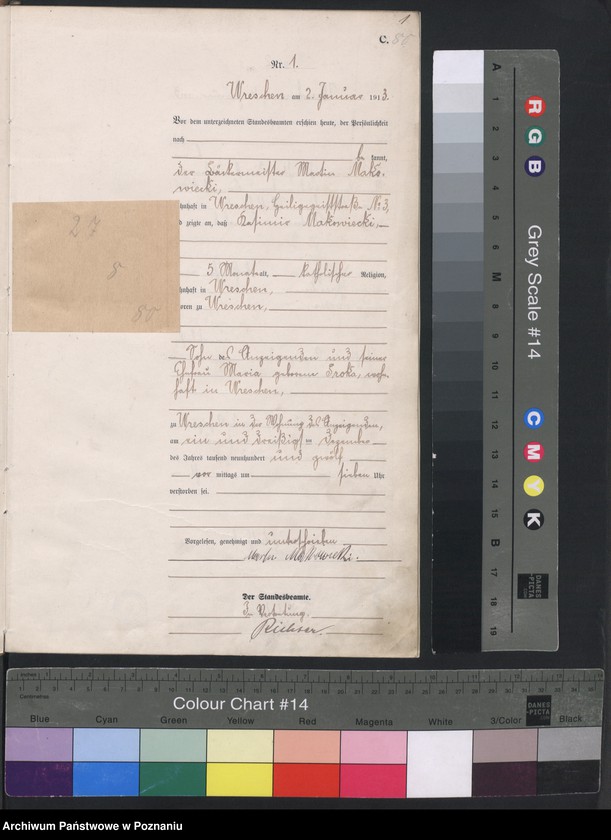 1
C. 80
Nr. 1.
Wreschen am 2. Januar 1913.
Vor dem unterzeichneten Standesbeamten erschien heute, der Persönlichkeit
nach
be kannt,
der Bäckermeister Martin Mako-
wiecki,
wohnhaft in Wreschen, Heiligegeiststraße No 3,
und zeigte an, daß Kasimir Makowiecki,
27
5
80
5 Monate alt, katholischer Religion,
wohnhaft in Wreschen,
geboren zu Wreschen,
Sohn des Anzeigenden und seiner
Ehefrau Maria geborene Sroka, wohn-
haft in Wreschen,
zu Wreschen in der Wohnung des Anzeigenden,
am ein und dreißigsten Dezember
des Jahres tausend neunhundert und zwölf
vor mittags um sieben Uhr
verstorben sei.
Vorgelesen, genehmigt und unterschrieben
Martin Makowiecki.
Der Standesbeamte.
In Vertretung.
Richter.
A
1
2
3
4
5
6
M
8
9
10
11
12
13
14
15
B
17
18
19
R
G
B
Grey Scale #14
C
M
Y
K
DANES
-PICTA
Inches
Centimetres
Colour Chart #14
DANES
-PICTA
Blue Cyan Green Yellow Red Magenta White 3/Color Black
Archiwum Państwowe w Poznaniu